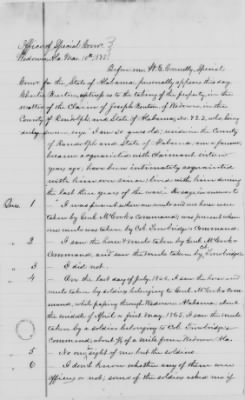 Office of Special Comr
Wedowee Ala Mar 10th 187
Before me W. G. Connelly Special
Comr for the State of Alabama personally appears this day
Charles Burton, witness to the taking of the property in the
matter of the Claim of Joseph Benton, of Wedowee, in the
County of Randolph and State of Alabama, No. 823, who being
duly sworn says I am 30 years old; reside in the County
of Randolph and State of Alabama, am a farmer,
became acquainted with claimant sixteen
years ago; have been intimately acquainted
with him ever since; lived with him during
the last three years of the war; He says in answer to
Ques 1 I was present when one mule and one horse were
taken by Genl McCooks Command; was present when
one mule was taken by Col. Trowbridge's Command.
" 2 - I saw the horse & mule taken by Genl McCooks
Command, and saw the mule taken by Col. Trowbridge's
" 3 - I did not.
" 4 - On the last day of July 1864 I saw the horse and
mule taken by soldiers belonging to Genl McCooks Com-
mand, while passing through Wedowee Alabama. About
the middle of April or first May 1865 I saw the mule
taken by a soldier belonging to Col Trowbridge's
Command, about ¾ of a mile from Wedowee Ala.
" 5 No one
" 6 I don't know whether any of them were
officers or not; some of the soldiers asked me if